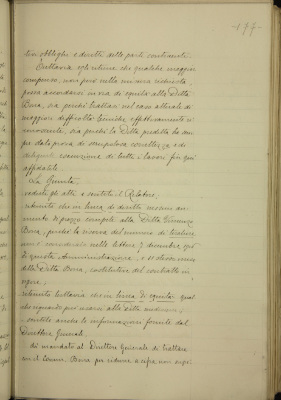 - 177 -
tivi obblighi e diritti delle parti contraenti.
Tuttavia egli ritiene che qualche maggior
compenso, non però nella misura richiesta,
possa accordarsi in via di equità alla Ditta
Bosa, sia perchè trattasi nel caso attuale di
maggiori difficoltà tecniche effettivamente
, sia perchè la Ditta predetta ha sem
pre dato prova di scrupolosa correttezza e di
diligente esecuzione di tutti i lavori fin qui
affidatile.
La Giunta,
veduti gli atti e sentito il Relatore,
ritenuto che in linea di diritto nessun au-
mento di prezzo compete alla Ditta
Bosa, perchè la riserva del numero di tirature
non è contenuta nella lettera 7 dicembre
di questa Amministrazione, e
della Ditta Bosa, costitutiva del contratto in
vigore;
ritenuto tuttavia che in linea di equità qual
che riguardo può usarsi alla ditta medesima;
sentite anche le informazioni fornite dal
Direttore Generale,
dà mandato al Direttore Generale di trattare
con il Comm. Bosa per ridurre a cifra non supe-